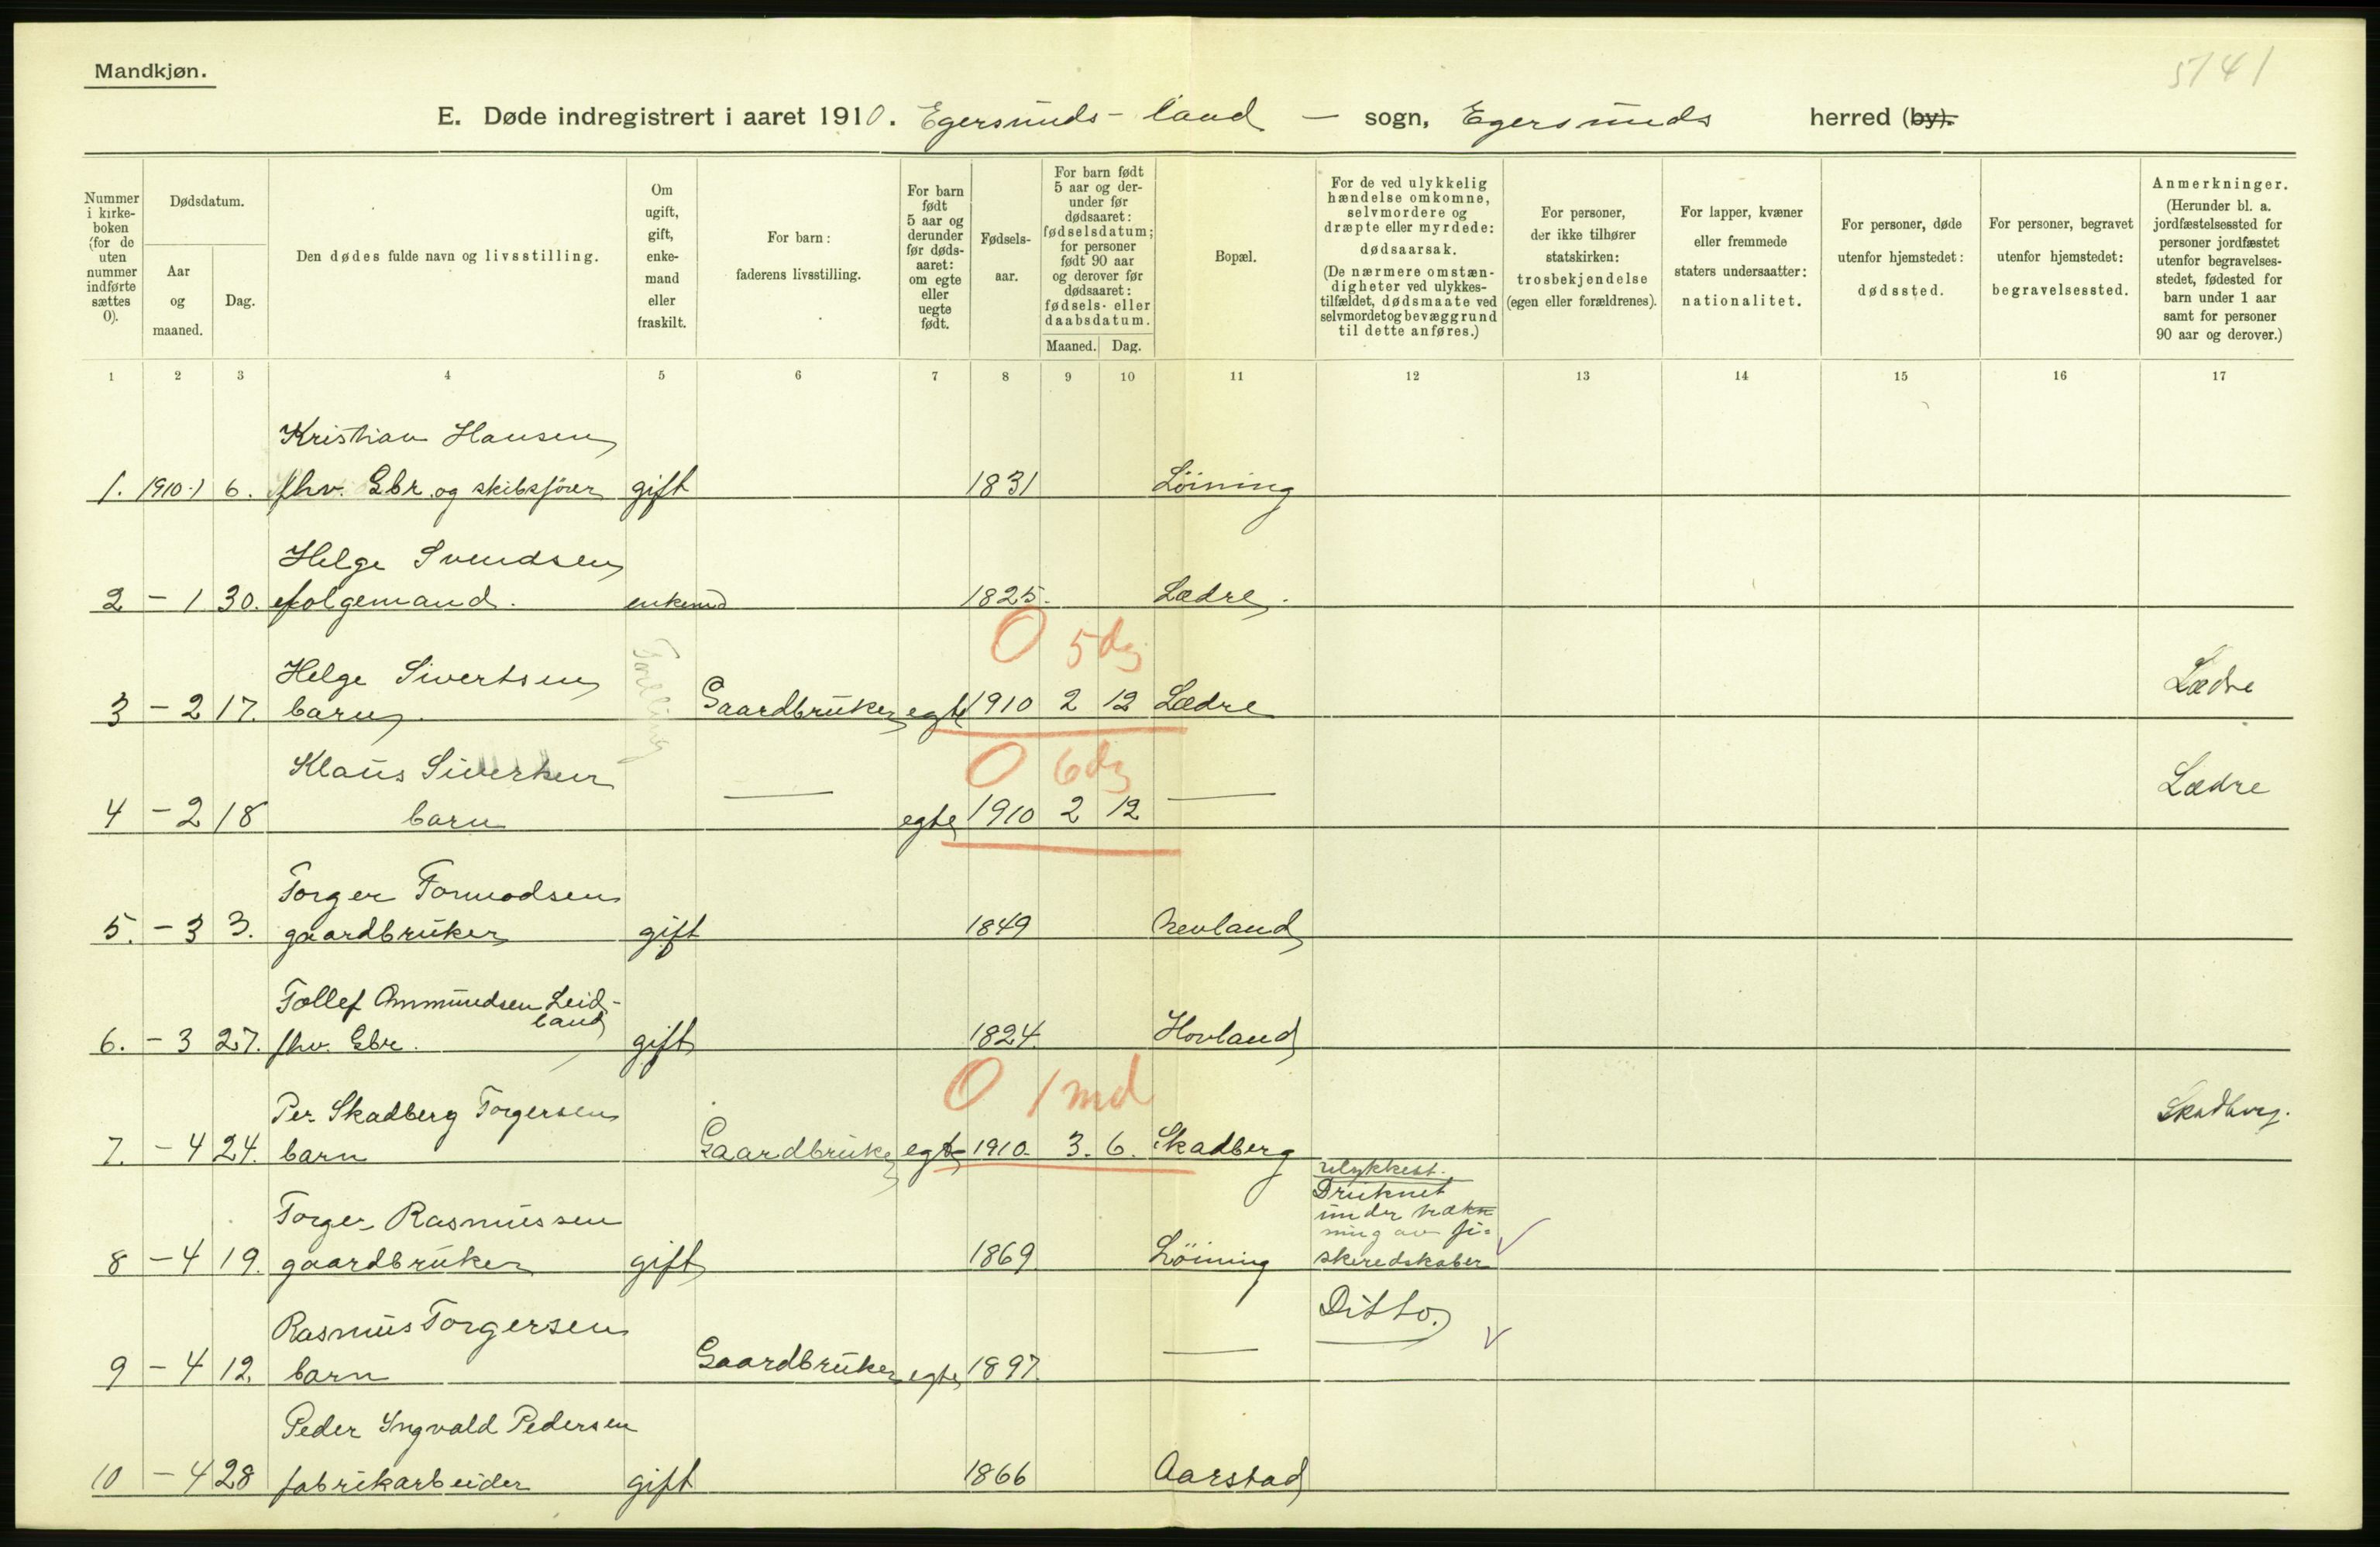 Mandkjøn.
5141
E. Døde indregistrert i aaret 1910. Egersunds-land – sogn, Egersunds herred (by).
Nummer i kirkeboken (for de uten nummer indførte sættes 0).
Dødsdatum.
Aar og maaned.
Dag.
Den dødes fulde navn og livsstilling.
Om ugift, gift, enkemand eller fraskilt.
For barn: faderens livsstilling.
For barn født 5 aar og derunder før dødsaaret: om egte eller uegte født.
Fødselsaar.
For barn født 5 aar og derunder før dødsaaret: fødselsdatum; for personer født 90 aar og derover før dødsaaret: fødsels- eller daabsdatum.
Maaned. Dag.
Bopæl.
For de ved ulykkelig hændelse omkomne, selvmordere og dræpte eller myrdede: dødsaarsak. (De nærmere omstændigheter ved ulykkestilfældet, dødsmaate ved selvmordet og bevæggrund til dette anføres.)
For personer, der ikke tilhører statskirken: trosbekjendelse (egen eller forældrenes).
For lapper, kvæner eller fremmede staters undersaatter: nationalitet.
For personer, døde utenfor hjemstedet: dødssted.
For personer, begravet utenfor hjemstedet: begravelsessted.
Anmerkninger. (Herunder bl. a. jordfæstelsessted for personer jordfæstet utenfor begravelsesstedet, fødested for barn under 1 aar samt for personer 90 aar og derover.)
1 2 3 4 5 6 7 8 9 10 11 12 13 14 15 16 17
Kristian Hansen
1. 1910-1 6. fhv. Gbr. og skibsfører gift 1831 Löining
Helge Svendsen
2 – 1 30. folgemand. enkemd 1825. Lædre.
0 5 dg
Tvilling
Helge Sivertsen
3 – 2 17. barn. Gaardbruker egte 1910 2 12 Lædre Lædre
0 6 dg
Klaus Sivertsen
4 – 2 18 barn — egte 1910 2 12 — Lædre
Torger Tormodsen
5. – 3 3. gaardbruker gift 1849 Nevland
Tollef Ommundsen Leid-
land
6. – 3 27. fhv. Gbr. gift 1824. Hovland
0 1 md
Per Skadberg Torgersen
7. – 4 24. barn Gaardbruker egte 1910. 3. 6. Skadberg Skadberg.
ulykkest.
Druknet
under trækn
ning av fi-
Torger Rasmussen
8 – 4 19. gaardbruker gift 1869 Löining skeredskaber
Ditto.
Rasmus Torgersen
9 – 4 12. barn Gaardbruker egte 1897. —
Peder Ingvald Pedersen
10 – 4 28 fabrikarbeider gift 1866 Aarstad